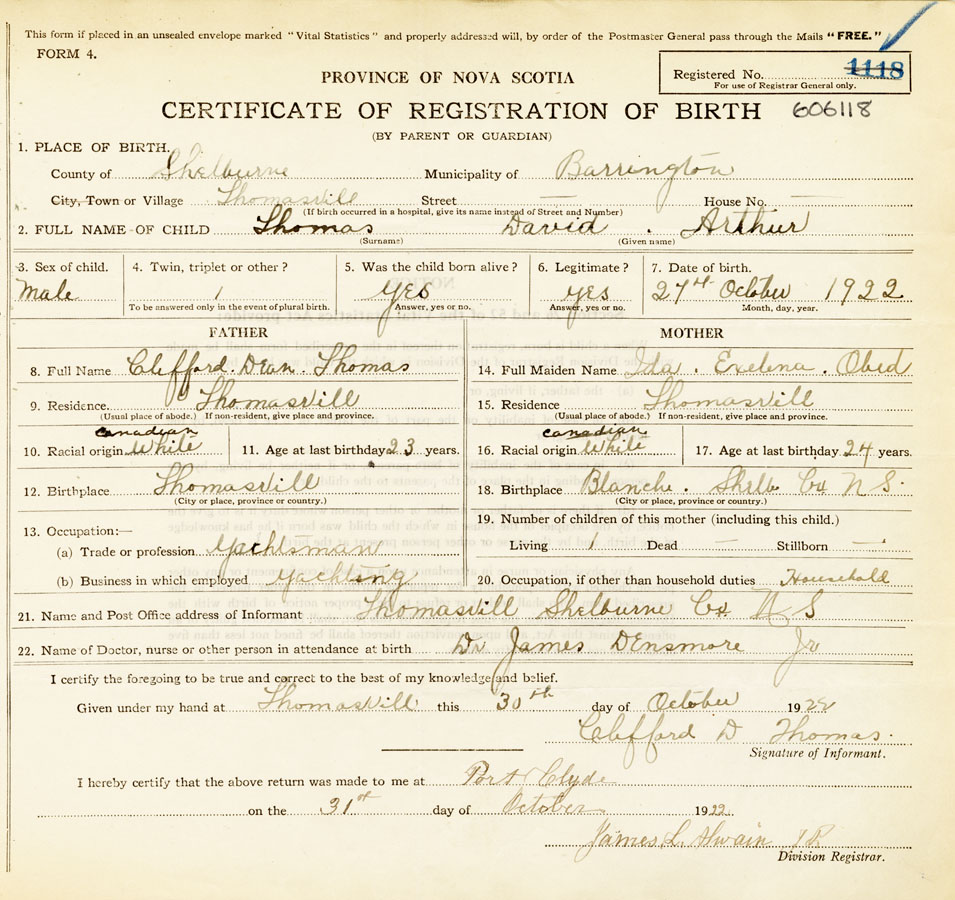 This form if placed in an unsealed envelope marked "Vital Statistics" and properly addressed will, by order of the Postmaster General pass through the Mails "FREE."
FORM 4.
Registered No. 1118
For use of Registrar General only.
PROVINCE OF NOVA SCOTIA
CERTIFICATE OF REGISTRATION OF BIRTH 606118
(BY PARENT OR GUARDIAN)
1. PLACE OF BIRTH.
County of Shelburne Municipality of Barrington
City, Town or Village Thomasvill Street — House No. —
(If birth occurred in a hospital, give its name instead of Street and Number)
2. FULL NAME OF CHILD Thomas David . Arthur
(Surname) (Given name)
3. Sex of child. 4. Twin, triplet or other? 5. Was the child born alive? 6. Legitimate? 7. Date of birth.
Male 1 yes yes 27th October 1922
To be answered only in the event of plural birth. Answer, yes or no. Answer, yes or no. Month, day, year.
FATHER MOTHER
8. Full Name Clifford . Dean . Thomas 14. Full Maiden Name Ida . Exelena . Obed
9. Residence Thomasvill 15. Residence Thomasvill
(Usual place of abode.) If non-resident, give place and province. (Usual place of abode.) If non-resident, give place and province.
canadian canadian
10. Racial origin White 11. Age at last birthday 23 years. 16. Racial origin White 17. Age at last birthday 24 years.
12. Birthplace Thomasvill 18. Birthplace Blanche . Shelb Co N S.
(City or place, province or country.) (City or place, province or country.)
13. Occupation:— 19. Number of children of this mother (including this child.)
(a) Trade or profession Yachtsman Living 1 Dead — Stillborn —
(b) Business in which employed Yachting 20. Occupation, if other than household duties Household
21. Name and Post Office address of Informant Thomasvill Shelburne Co N S
22. Name of Doctor, nurse or other person in attendance at birth Dr James Densmore Jr
I certify the foregoing to be true and correct to the best of my knowledge and belief.
Given under my hand at Thomasvill this 30th day of October 1922
Clifford D Thomas.
Signature of Informant.
I hereby certify that the above return was made to me at Port Clyde
on the 31st day of October 1922
James L. Swain
Division Registrar.